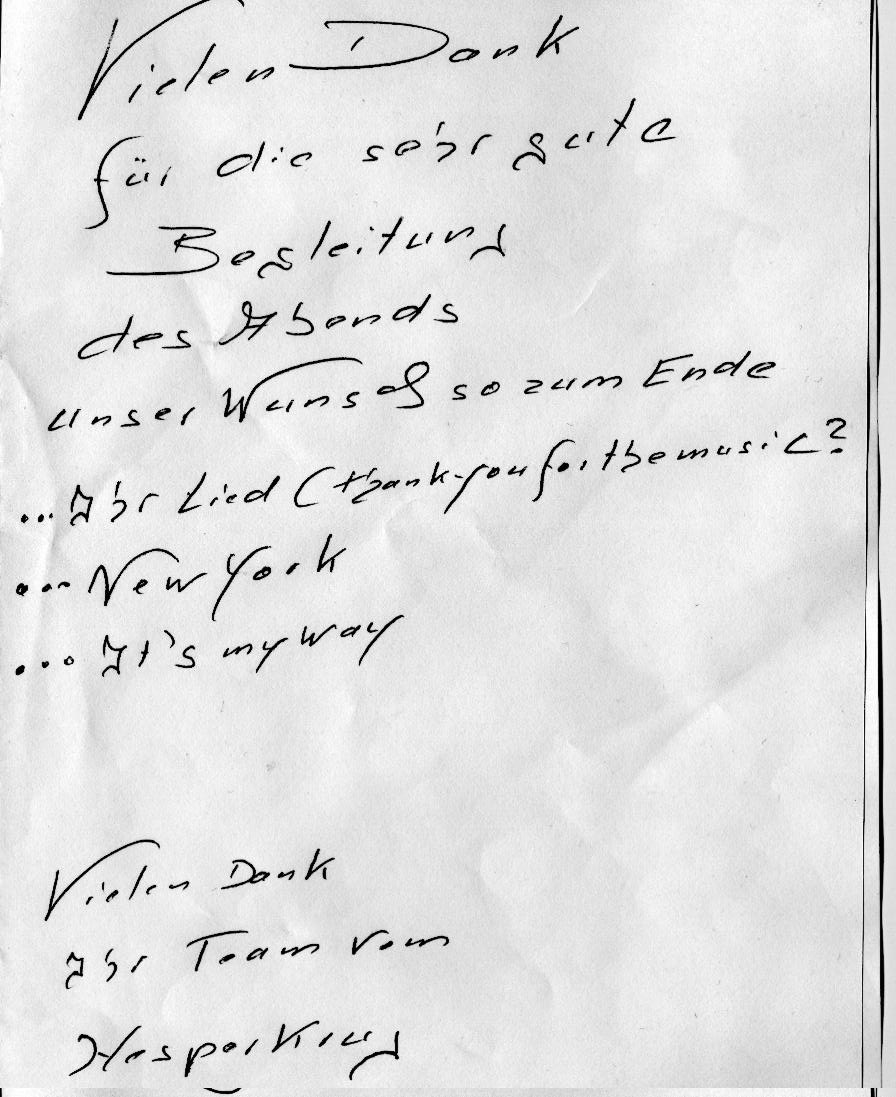 Vielen Dank
für die sehr gute
Begleitung
des Abends
unser Wunsch so zum Ende
...Ihr Lied (thank-you for the music?
... New York
... It's my way
Vielen Dank
Ihr Team vom
Hesperkrug